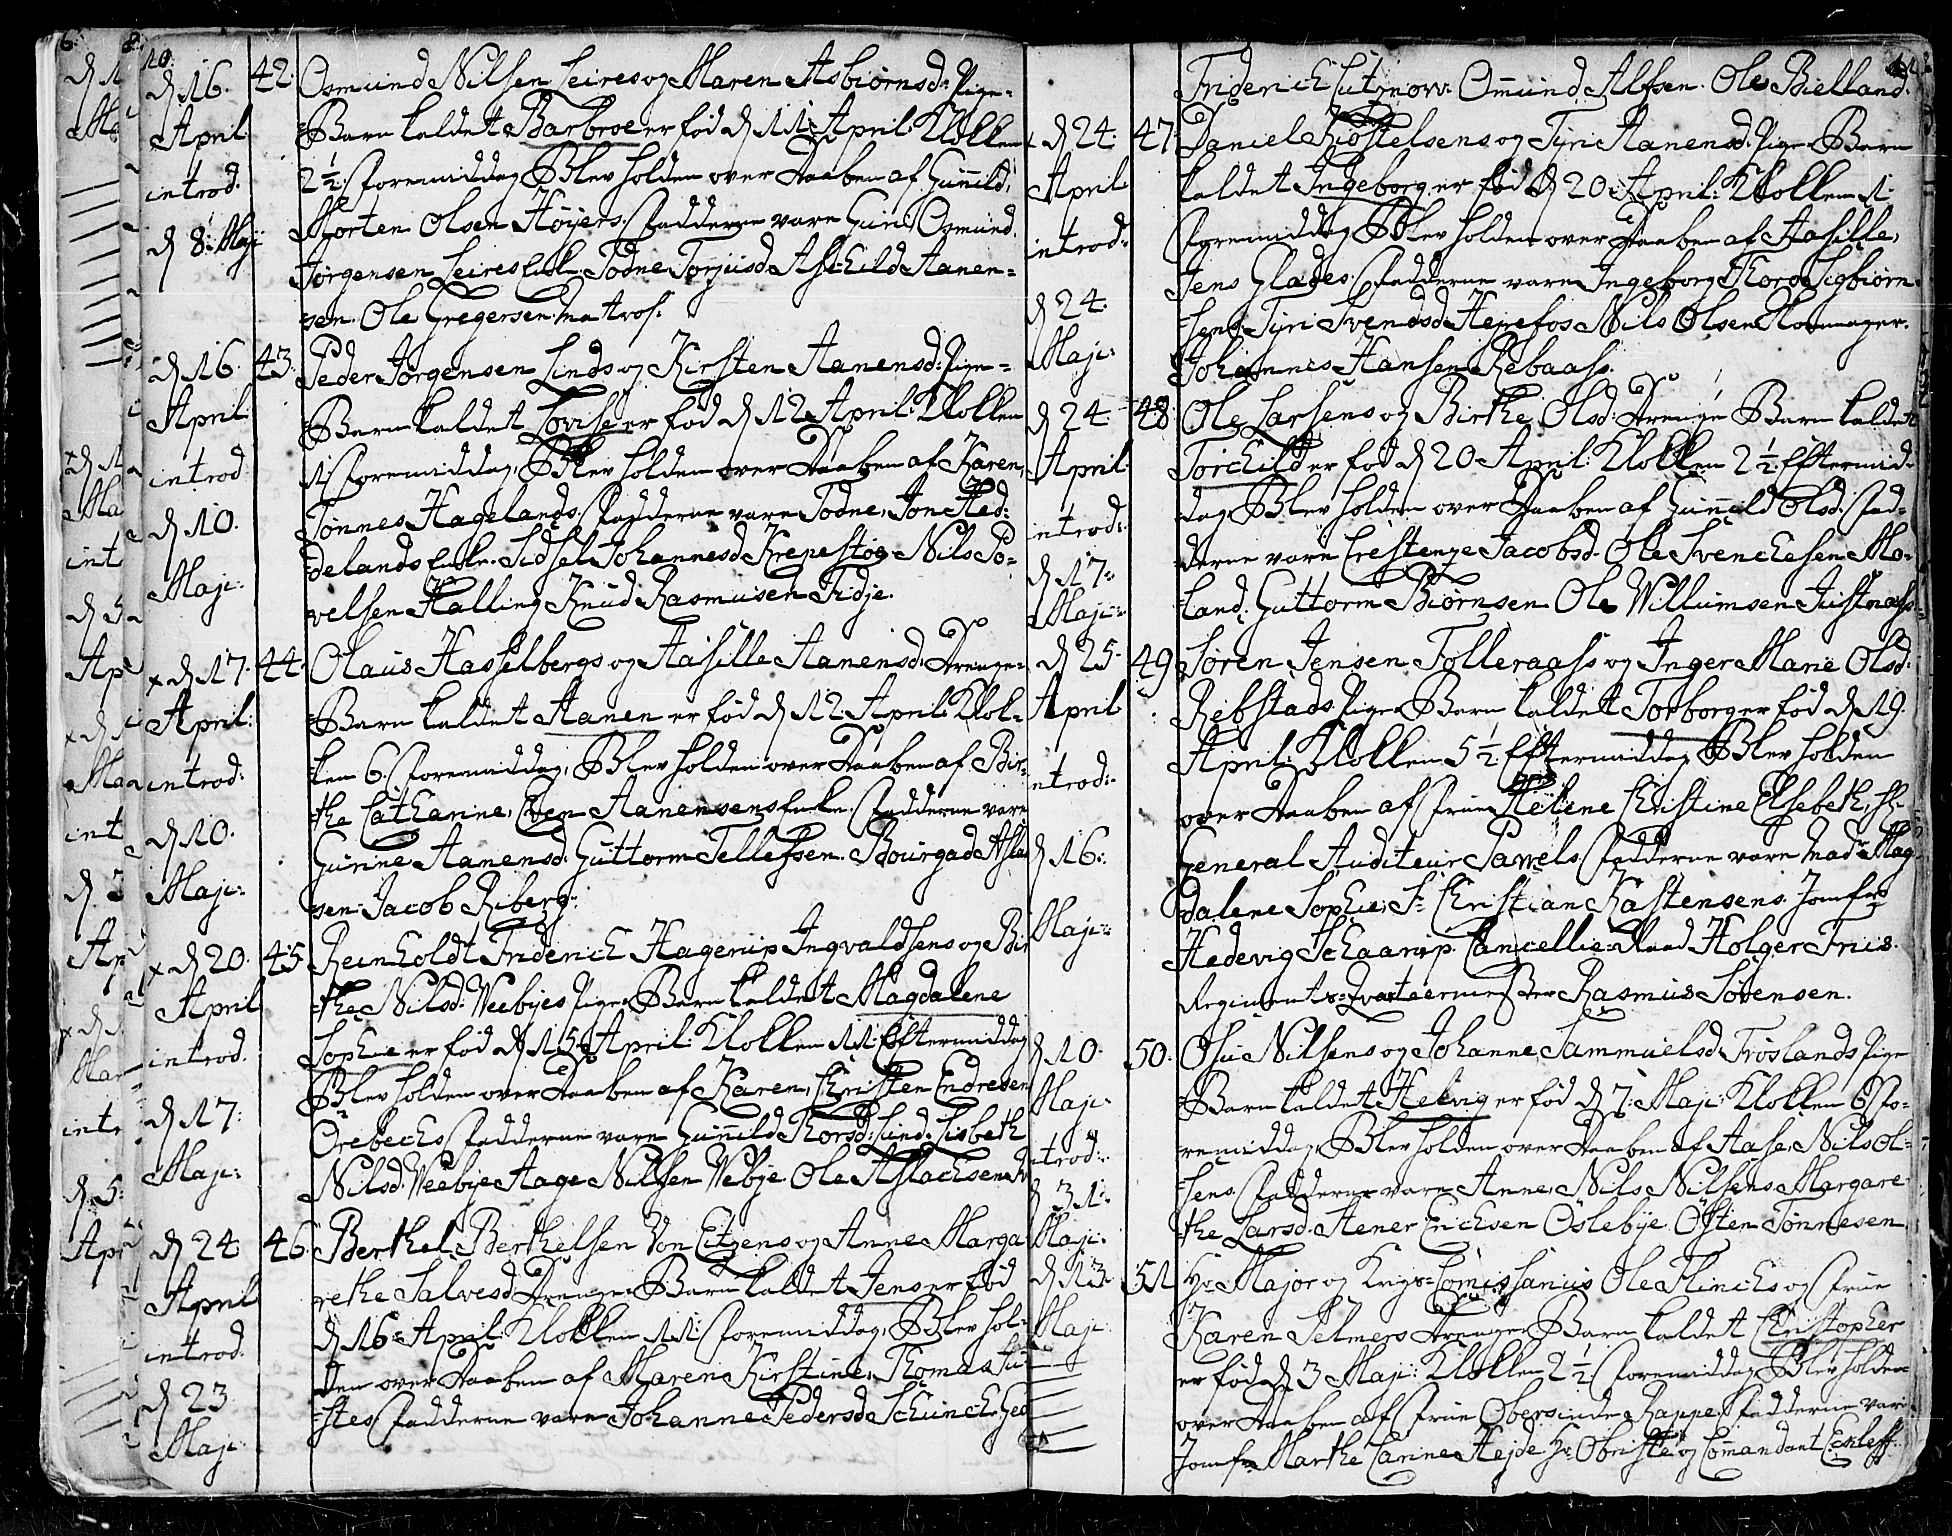 10.
d 16.
April
introd.
d 8. Maji
42. Osmund Nilsen Leires og Maren Asbiørnsd: Pige-
Barn kaldet Barbroe er fød d 11 April Klokken
2 1/2 Formiddag, Blev holden over Daaben af Gunild,
Morten Olsen Høyers. Fadderne vare Guri Osmund
Jørgensen Leires Enke. Todne Torjusd Aschild Aanen-
sen. Ole Gregersen Matros.
d 16.
April
introd
d 10.
Maji:
43. Peder Jørgensen Linds og Kirsten Aanensd: Pige-
Barn kaldet Lovise er fød d 12 April: Klokken
11 Formiddag, Blev holden over Daaben af Karen,
Tønnes Hagelands. Fadderne vare Todne, Jon Hed-
delands Enke. Sidsel Johannesd Krepestøe Nils Po-
velsen Halling Knud Rasmusen Tidje.
x d 17.
April:
introd:
d 10.
Maji:
44. Olaus Hasselbergs og Aasille Aanensd: Drenge-
Barn kaldet Aanen er fød d 12 April: Klok-
ken 6. Formiddag, Blev holden over Daaben af Bir-
the Catharine, Aanensens Enke. Fadderne vare
Gurine Aanensd. Guttorm Tellefsen. Bourgad Asla
sen. Jacob Riberg.
x d 20.
April
introd.
d 17:
Maji:
45 Reinholdt Friderich Hagerup Ingvaldsens og Bir
the Nilsd: Weebyes Pige Barn kaldet Magdalene
Sophie er fød d 15. April: Klokken 11: Eftermiddag
Blev holden over Daaben af Karen, Christen Endresen
Orebechs Fadderne vare Gunnild Thorsd: Lund: Lisbeth
Nilsd. Weebye Aage Nilsen Webye Ole Aslachsen
d 24
April
introd.
d 23
Maji
46 Berthel Berthelsen Von Eitzens og Anne Marga
rethe Salvesd Drenge Barn kaldet Jens er fød
d 16 April: Klokken 11: Formiddag, Blev hol-
den over Daaben af Maren Kirstine, Thomas Ju-
stes. Fadderne vare Johanne Pedersd Schunch
Friderich Lutznow. Omund Alfsen. Ole Bielland.
d 24.
April
introd:
d 24.
Maji:
47 Daniel Kiøstelsens og Tyri Aanensd. Pige Barn
kaldet Ingeborg er fød d 20 April: Klokken 11
Formiddag Blev holden over Daaben af Aasille,
Jens Glades. Fadderne vare Ingeborg Thore Sigbiørn
sens. Tyri Svendsd Hepefos Nils Olsen
Johannes Hansen Rebaas.
d 24
April
introd:
d 17:
Maji:
48 Ole Larsens og Birthe Olsd: Drenge Barn kaldet
Torchild er fød d 20 April: Klokken 2 1/2 Eftermid-
dag, Blev holden over Daaben af Gunnild Olsd. Fad-
derne vare Crestenze Jacobsd. Ole Svenchesen Mo-
land. Guttorm Biørnsen. Ole Willumsen Justnæs.
d 25
April
introd:
d 16:
Maji:
49 Søren Jensen Tolleraass og Inger Marie Olsd:
Rebstads Pige Barn kaldet Torborg er fød d 19.
April: Klokken 5 1/2: Eftermiddag Blev holden
over Daaben af Frue Helene Christine Elsebeth, Hr.
General Auditeur Pawels. Fadderne vare Madme Mag
dalene Sophie, Sr. Christian Kastensens. Jomfru
Hedevig Schaarup. Cancellie Raad Holger Friis.
Regiments-Qvarteermester Rasmus Sørensen.
d 10.
Maji:
introd:
d 31:
Maji:
50. Osu Nilsens og Johanne Sammuelsd Trøslands Pige
Barn kaldet Helvig er fød d 7. Maji: Klokken 6 Fo-
remiddag Blev holden over Daaben af Aase, Nils Ol-
sens. Fadderne vare Anne, Nils Nilsens Margare
the Larsd. Aener Erichsen Oslebye. Østen Tønnesen
d 13
Maji:
51 Hr Major og Krigs-Comissarius Ole Flinchs og Frue
Karen Selmers Drenge Barn kaldet Christopher
er fød d 3 Maji: Klokken 2 1/2 Formiddag Blev holden
over Daaben af Frue Obersinde Rappe. Fadderne vare
Jomfr Marthe Carine Hejde Hr Obriste og Commandant Eckleff.